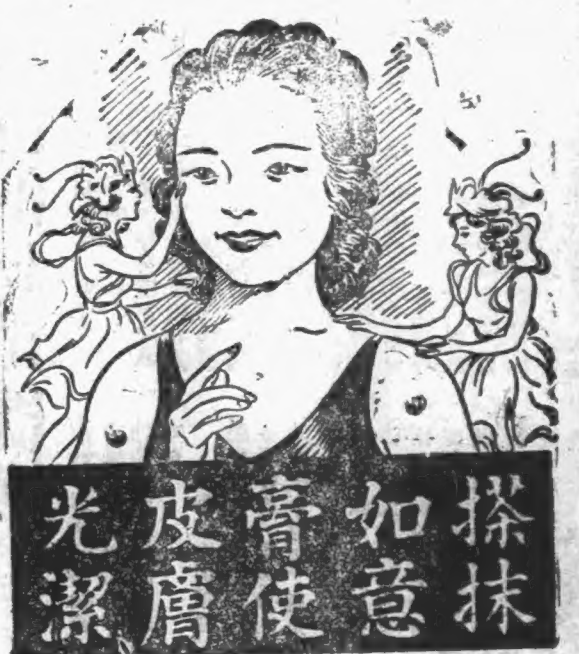 搽抹
如意
膏使
皮膚
光潔